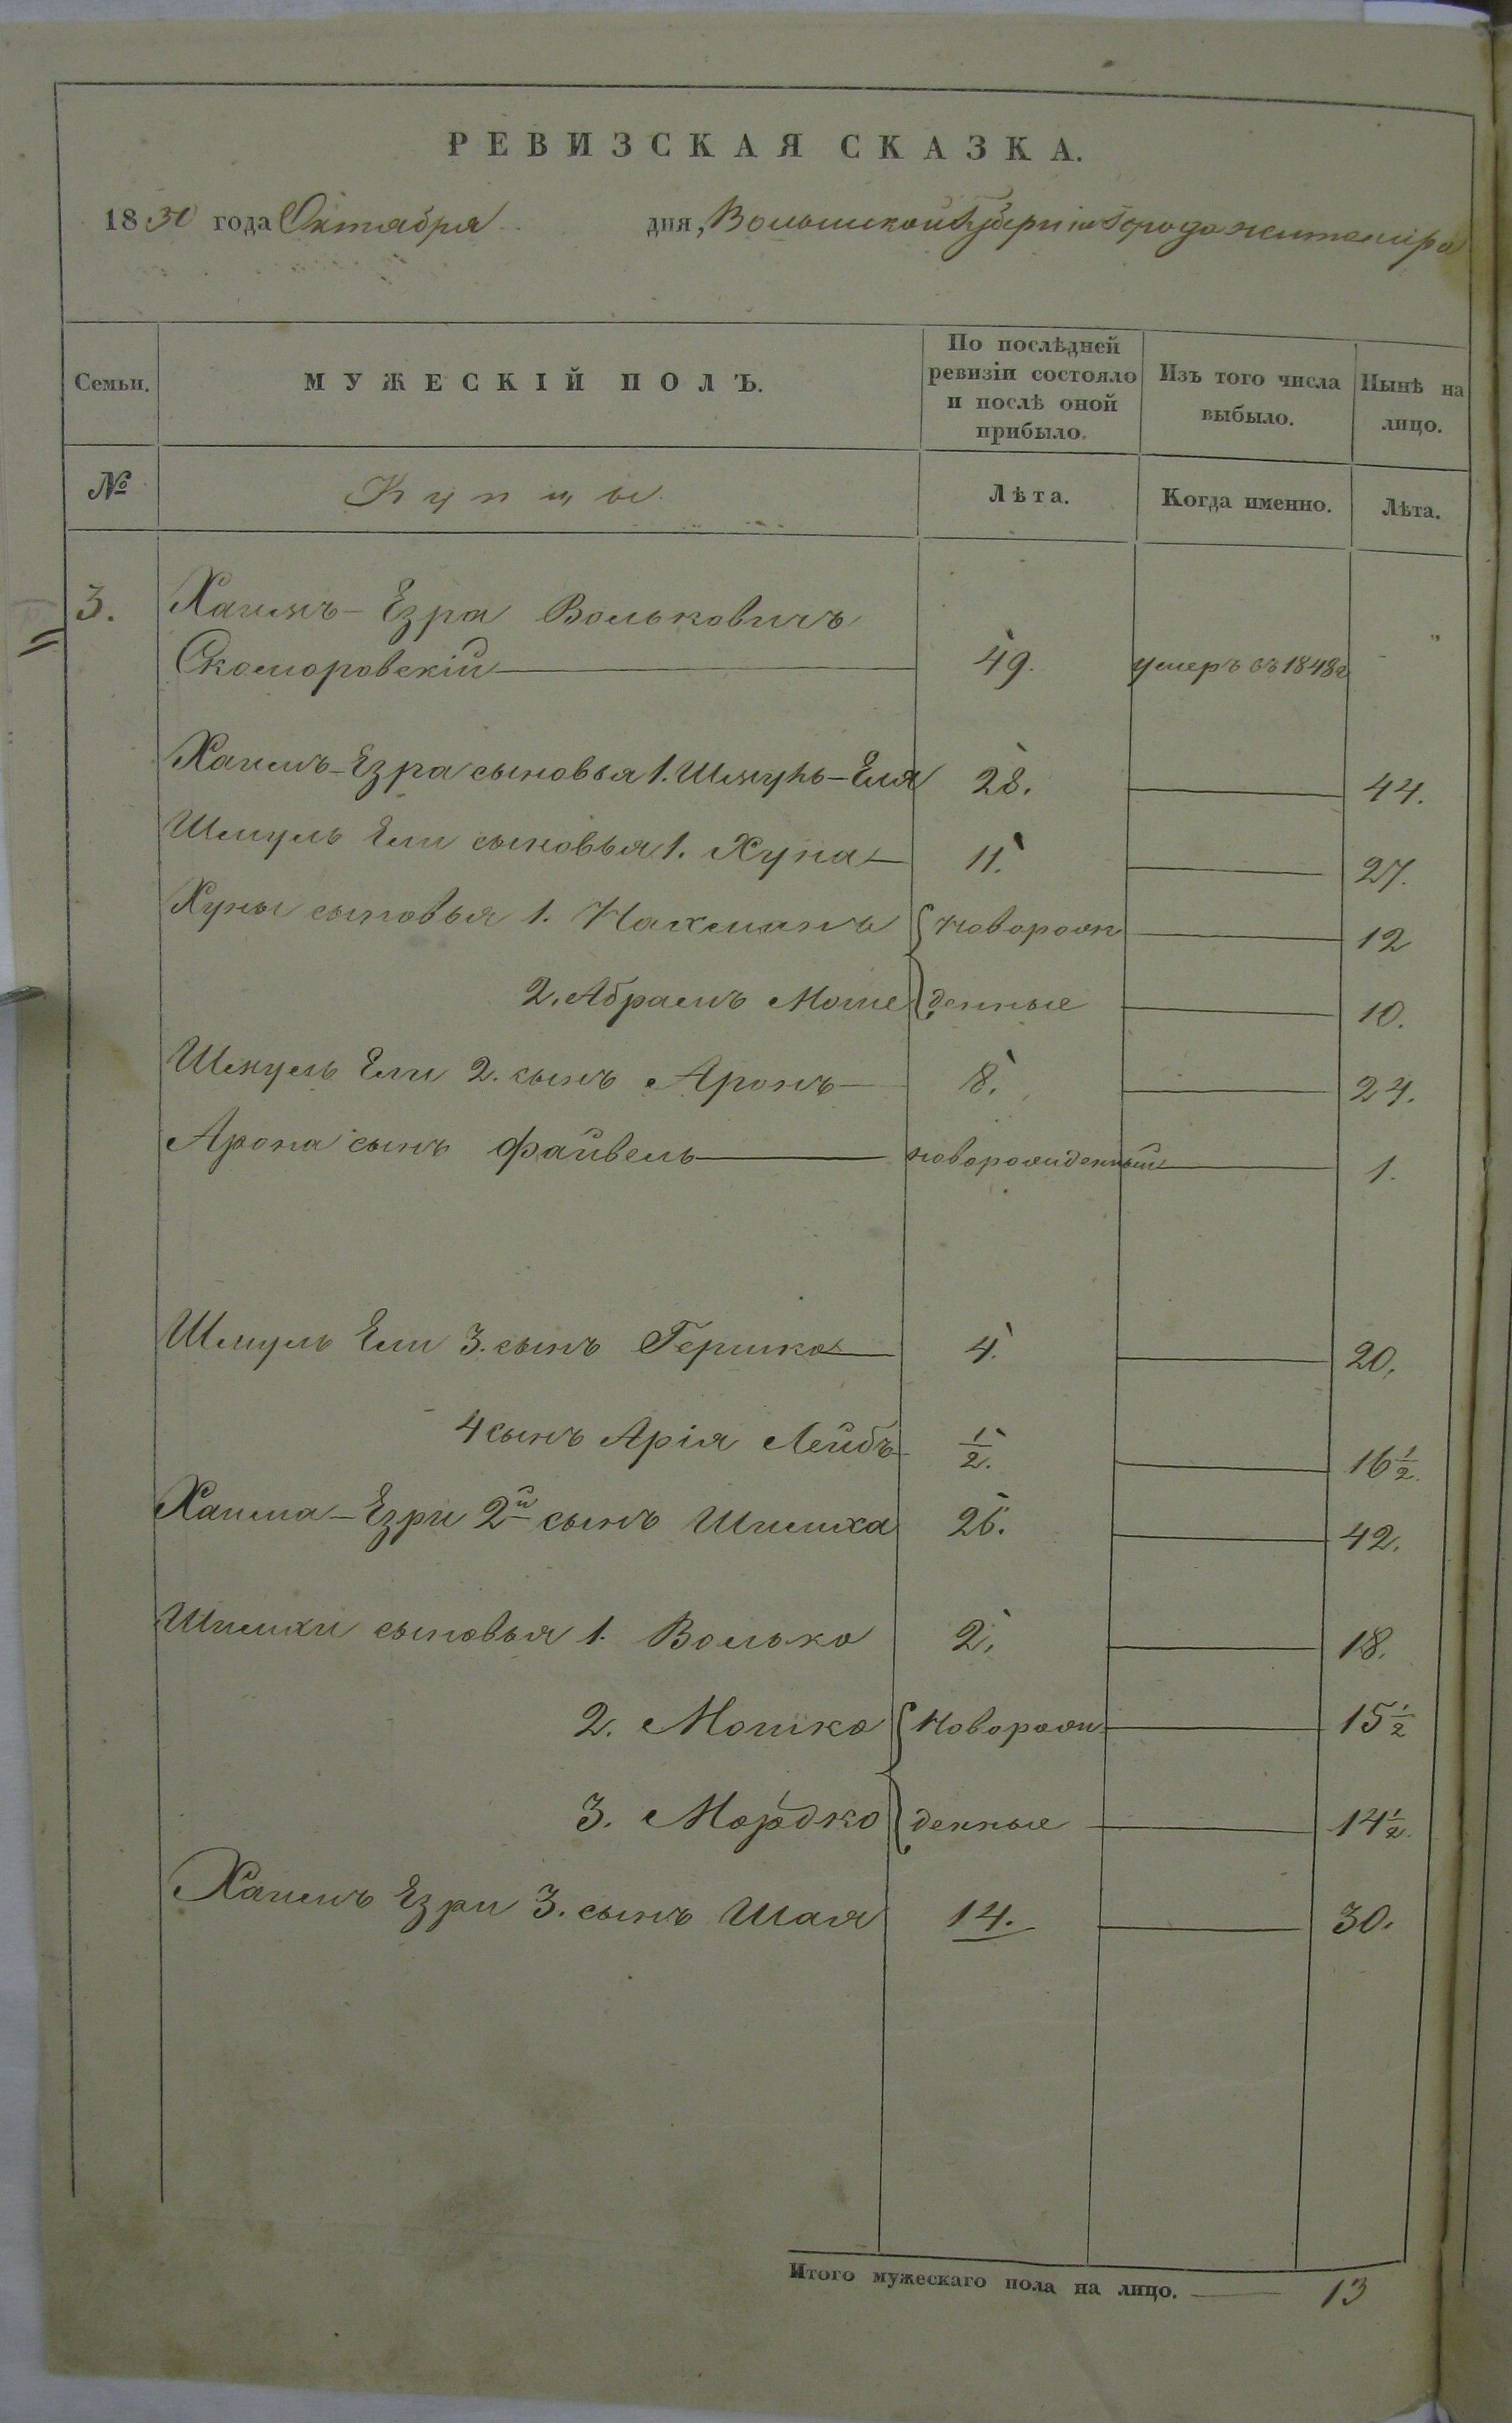 РЕВИЗСКАЯ СКАЗКА.
1850 года Октября дня, Волынской Губерніи Города Житомира
Семьи. МУЖЕСКІЙ ПОЛЪ. По послѣдней ревизіи состояло и послѣ оной прибыло. Изъ того числа выбыло. Нынѣ на лицо.
№ Купцы. Лѣта. Когда именно. Лѣта.
3. Хаимъ-Езра Вольковичъ
Скоморовскій 49. умеръ въ 1848г
Хаимъ-Езра сыновья 1. Шмуль-Еля 28. 44.
Шмуль Ели сыновья 1. Хуна 11. 27.
Хуны сыновья 1. Нахманъ новорож 12
2. Абрамъ Моше денные 10.
Шмуль Ели 2. сынъ Аронъ 8. 24.
Арона сынъ Файвель новорожденный 1.
Шмуль Ели 3. сынъ Гершко 4. 20.
4 сынъ Арія Лейбъ 1/2. 16 1/2.
Хаима-Езри 2й сынъ Шимха 26. 42.
Шимхи сыновья 1. Волько 2. 18.
2. Мошко новорож 15 1/2
3. Мордко денные 14 1/2.
Хаимъ Езри 3. сынъ Шая 14. 30.
Итого мужескаго пола на лицо. 13